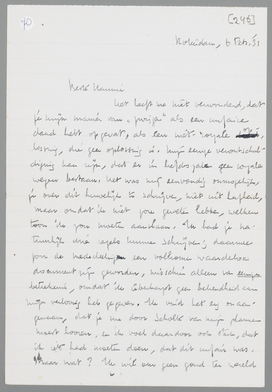 70
[245]
Rotterdam, 6 Febr. '51
Beste Hannie
Het heeft me niet verwonderd, dat
je mijn manier van " " als een unfaire
daad hebt opgevat, als een niet-royale
lossing, die geen oplossing is. Mijn eenige verontschul-
diging kan zijn, dat er in liefdezaken geen royale
wegen bestaan. Het was mij eenvoudig onmogelijk,
je over dit huwelijk te schrijven, niet uit lafheid,
maar omdat ik niet zou geweten hebben, welken
toon ik zou moeten aanslaan. Ik had je na-
tuurlijk drie regels kunnen schrijven, daarmee
zou de mededeeling een volkomen waardeloos
document zijn geworden, misschien alleen van eenige
beteekenis, omdat ik überhaupt geen bekendheid aan
mijn verloving heb gegeven. Ik vind het erg onaan-
genaam, dat je me door Scholte van mijn plannen
moest hooren, en ik voel daardoor ook sterk, dat
ik iets had moeten doen, dat dit unfair was.
Maar wat? Ik wil om geen goed ter wereld